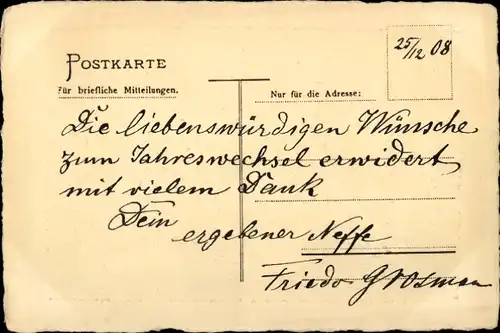 25/12 08
POSTKARTE
Für briefliche Mitteilungen.
Nur für die Adresse:
Die liebenswürdigen Wünsche
zum Jahreswechsel erwidert
mit vielem Dank
Dein
ergebener Neffe
Friedo